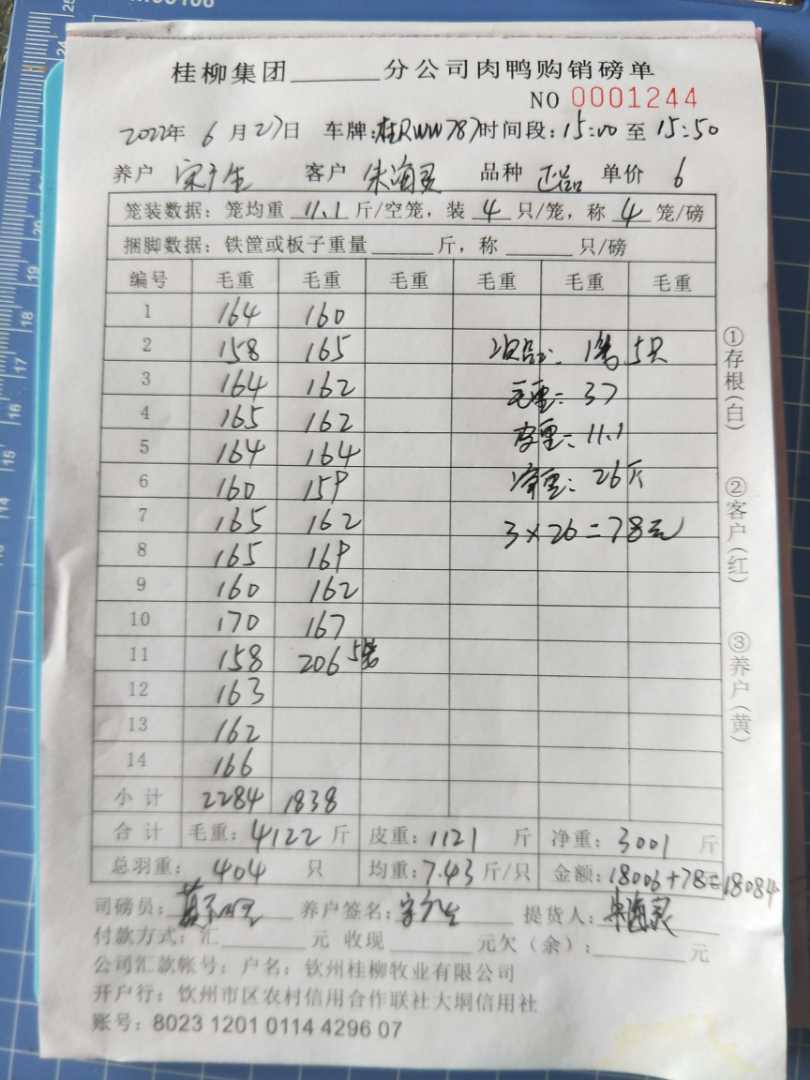 桂柳集团______分公司肉鸭购销磅单
NO 0001244
2022年 6月27日 车牌:桂RWW787时间段:15:00至15:50
养户 宋广生 客户 朱海灵 品种 正品 单价 6
笼装数据: 笼均重 11.1 斤/空笼, 装 4 只/笼, 称 4 笼/磅
捆脚数据: 铁筐或板子重量______斤, 称______只/磅
编号 毛重 毛重 毛重 毛重 毛重 毛重
1 164 160
2 158 165 次品: 1笼 5只
3 164 162 毛重: 37
4 165 162 皮重: 11.1
5 164 164
6 160 159 净重: 26斤
7 165 162 3×26=78元
8 165 169
9 160 162
10 170 167
11 158 206 5笼
12 163
13 162
14 166
小计 2284 1838
合计 毛重: 4122 斤 皮重: 1121 斤 净重: 3001 斤
总羽重: 404 只 均重: 7.43 斤/只 金额: 18006+78=18084
司磅员: 养户签名: 宋广生 提货人: 朱海灵
付款方式: 汇______元 收现______元欠(余):______元
公司汇款帐号: 户名: 钦州桂柳牧业有限公司
开户行: 钦州市区农村信用合作联社大垌信用社
账号: 8023 1201 0114 4296 07
①存根(白)
②客户(红)
③养户(黄)